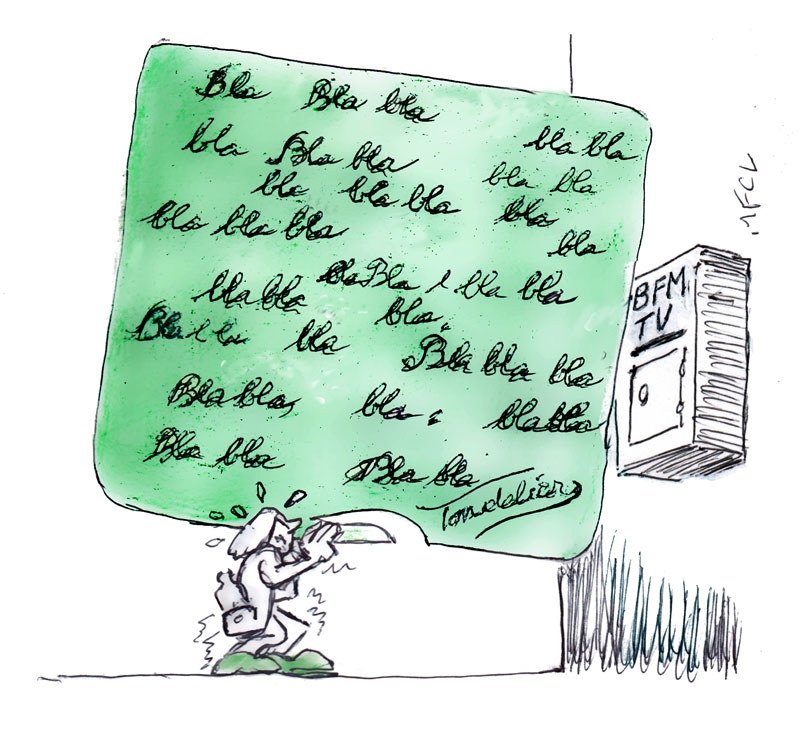 Bla Bla bla
bla Bla bla bla bla
bla bla bla bla bla
bla bla bla bla
bla
bla bla bla Bla bla bla
bla
Bla bla
Bla bla bla
Bla bla bla bla bla
Bla bla Bla bla
BFM
TV